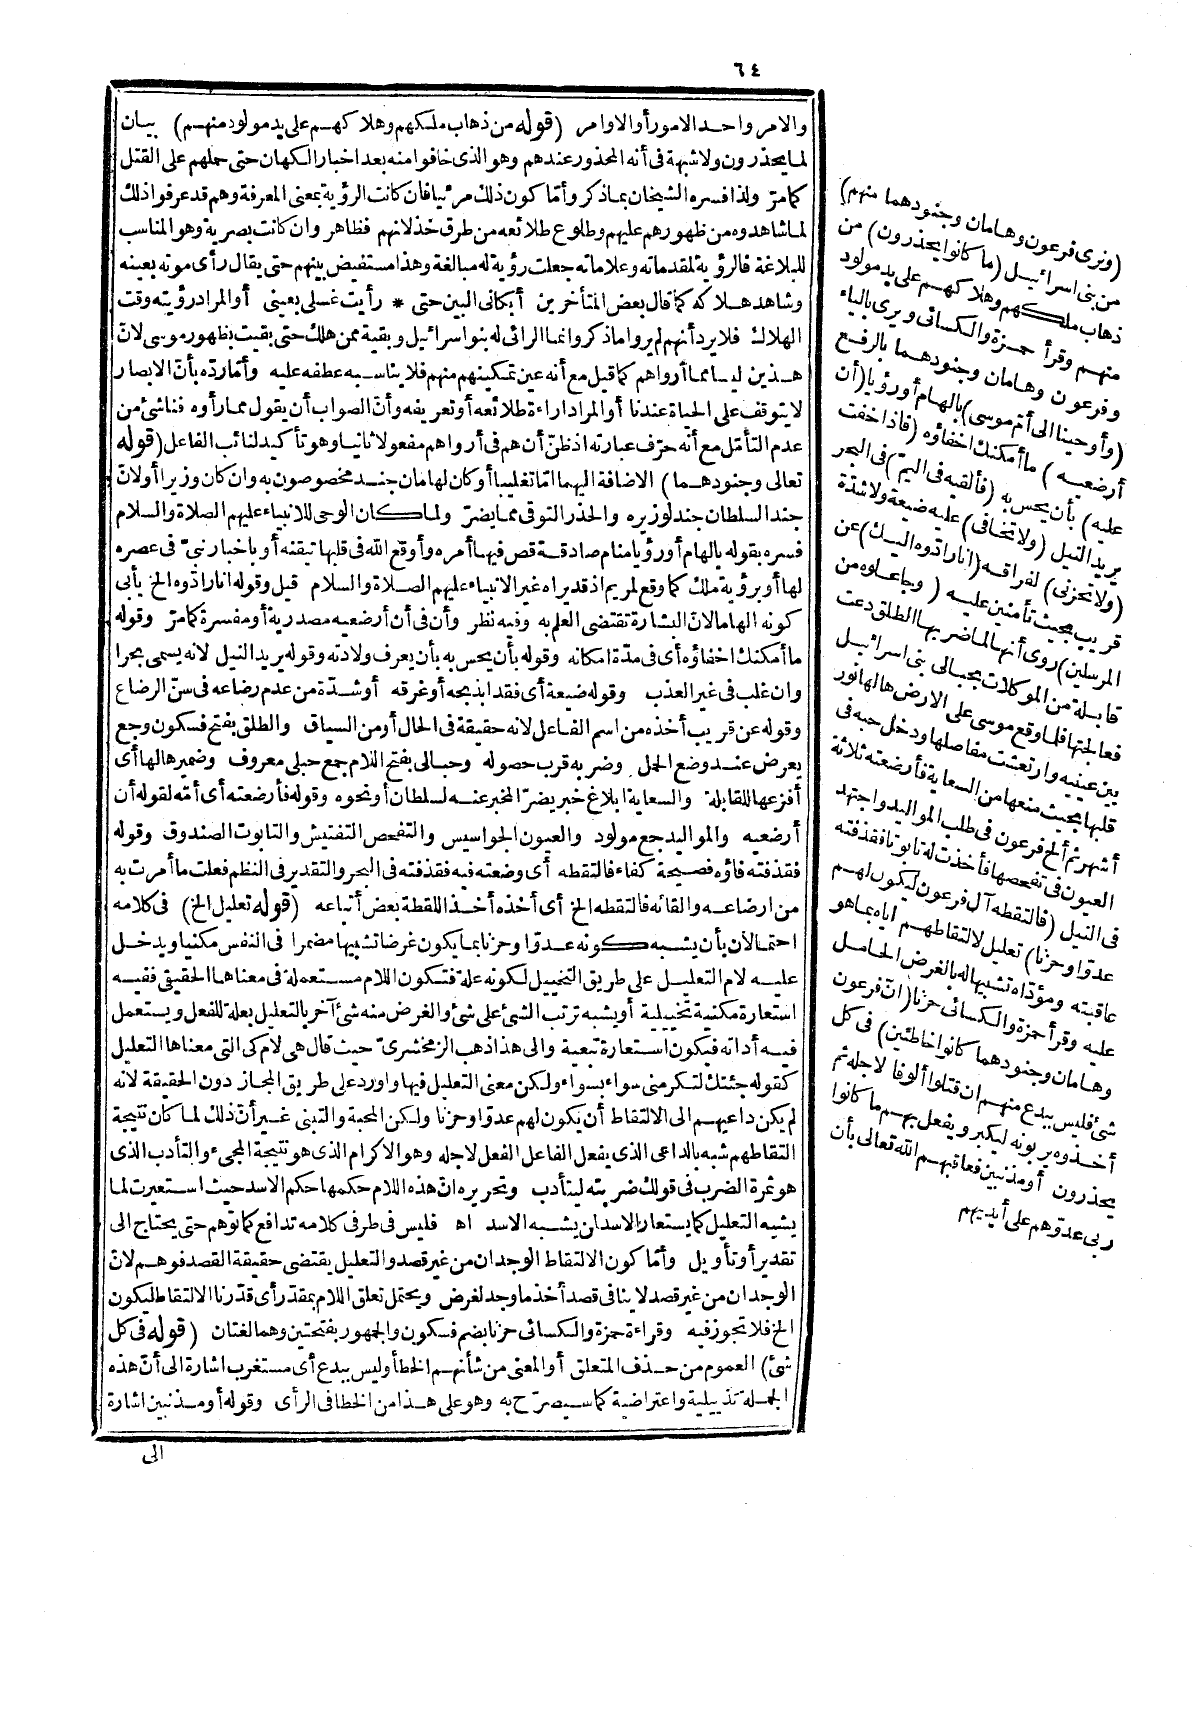 ٦٤
والامر واحد الامور أو الاوامر (قوله من ذهاب ملكهم وهلاكهم على يد مولود منهم) بيان
لما يحذرون ولا شبهة فى أنه المحذور عندهم وهو الذى خافوا منه بعد اخبار الكهان حتى حملهم على القتل
كما مرّ ولذا فسره الشيخان بما ذكر وأما كون ذلك مرئيا فان كانت الرؤية بمعنى المعرفة وهم قد عرفوا ذلك
لما شاهدوه من ظهورهم عليهم وطلوع طلائعه من طرق خذلانهم فظاهر وان كانت بصرية وهو المناسب
للبلاغة فالرؤية لمقدماته وعلاماته جعلت رؤية له مبالغة وهذا مستفيض بينهم حتى يقال رأى موته بعينه
وشاهد هلاكه كما قال بعض المتأخرين أبكانى البين حتى * رأيت غسلى بعينى أو المراد رؤيته وقت
الهلاك فلا يرد أنهم لم يروا ما ذكر وانما الرائى له بنو اسرائيل وبقية ممن هلك حتى بقيت بظهور موسى لان
هذين ليسا مما أرواهم كما قيل مع أنه عين تمكينهم منهم فلا يناسبه عطفه عليه وأما ردّه بأنّ الابصار
لا يتوقف على الحياة عندنا أو المراد اراءة طلائعه أو تعريفه وأنّ الصواب أن يقول مما رأوه فناشئ من
عدم التأمّل مع أنّه حرّف عبارته اذ ظنّ أن هم فى أرواهم مفعولا ثانيا وهو تأكيد لنائب الفاعل (قوله
تعالى وجنودهما) الاضافة اليهما امّا تغليبا أو كان لهامان جند مخصوصون به وان كان وزيرا أو لانّ
جند السلطان جند لوزيره والحذر التوقى مما يضرّ ولما كان الوحى للانبياء عليهم الصلاة والسلام
فسره بقوله بالهام أو رؤيا منام صادقة قص فيها أمره وأوقع الله فى قلبها تيقنه أو باخبار نبىّ فى عصره
لها أو برؤية ملك كما وقع لمريم اذ قد يراه غير الانبياء عليهم الصلاة والسلام قيل وقوله انا رادّوه الخ يأبى
كونه الهاما لانّ البشارة تقتضى العلم به وفيه نظر وأن فى أن أرضعيه مصدرية أو مفسرة كما مرّ وقوله
ما أمكنك اخفاؤه أى فى مدّة امكانه وقوله بأن يحس به بأن يعرف ولادته وقوله يريد النيل لانه يسمى بحرا
وان غلب فى غير العذب وقوله ضيعة أى فقدا بذبحه أو غرقه أو شدّة من عدم رضاعه فى سنّ الرضاع
وقوله عن قريب أخذه من اسم الفاعل لانه حقيقة فى الحال أو من السياق والطلق بفتح فسكون وجع
يعرض عند وضع الحمل وضربه قرب حصوله وحبالى بفتح اللام جمع حبلى معروف وضمير هالها أى
أفزعها للقابلة والسعاية ابلاغ خبر يضرّ المخبر عنه لسلطان أو نحوه وقوله فأرضعته أى أمّه لقوله أن
أرضعيه والمواليد جمع مولود والعيون الجواسيس والتفحص التفتيش والتابوت الصندوق وقوله
فقذفته فاؤه فصيحة كفاء فالتقطه أى وضعته فيه فقذفته فى البحر والتقدير فى النظم فعلت ما أمرت به
من ارضاعه والقائه فالتقطه الخ أى أخذه أخذ اللقطة بعض أتباعه (قوله تعليل الخ) فى كلامه
احتمالان بأن يشبه كونه عدوّا وحزنا بما يكون غرضا تشبيها مضمرا فى النفس مكنيا ويدخل
عليه لام التعليل على طريق التخييل لكونه علة فتكون اللام مستعملة فى معناها الحقيقى ففيه
استعارة مكنية تخييلية أو يشبه ترتب الشئ على شئ والغرض منه شئ آخر بالتعليل بعلة للفعل ويستعمل
فيه أداته فيكون استعارة تبعية والى هذا ذهب الزمخشرىّ حيث قال هى لام كى التى معناها التعليل
كقوله جئتك لتكرمنى سواء بسواء ولكن معنى التعليل فيها وارد على طريق المجاز دون الحقيقة لانه
لم يكن داعيهم الى الالتقاط أن يكون لهم عدوّا وحزنا ولكن المحبة والتبنى غير أنّ ذلك لما كان نتيجة
التقاطهم شبه بالداعى الذى يفعل الفاعل الفعل لاجله وهو الاكرام الذى هو نتيجة المجىء والتأدب الذى
هو ثمرة الضرب فى قولك ضربته ليتأدب وتحريره انّ هذه اللام حكمها حكم الاسد حيث استعيرت لما
يشبه التعليل كما يستعار الاسد لمن يشبه الاسد اه فليس فى طرفى كلامه تدافع كما توهم حتى يحتاج الى
تقدير أو تأويل وأمّا كون الالتقاط الوجدان من غير قصد والتعليل يقتضى حقيقة القصد فوهم لانّ
الوجدان من غير قصد لا ينافى قصد أخذ ما وجد لغرض ويحتمل تعلق اللام بمقدّر أى قدّرنا الالتقاط ليكون
الخ فلا تجوز فيه وقراءة حمزة والكسائى حزنا بضم فسكون والجمهور بفتحتين وهما لغتان (قوله فى كل
شئ) العموم من حذف المتعلق أو المعنى من شأنهم الخطأ وليس ببدع أى مستغرب اشارة الى أنّ هذه
الجملة تذييلية واعتراضية كما سيصرّح به وهو على هذا من الخطا فى الرأى وقوله أو مذنبين اشارة
الى
(ونرى فرعون وهامان وجنودهما منهم)
من بنى اسرائيل (ما كانوا يحذرون) من
ذهاب ملكهم وهلاكهم على يد مولود
منهم وقرأ حمزة والكسائى ويرى بالياء
وفرعون وهامان وجنودهما بالرفع
(وأوحينا الى أمّ موسى) بالهام أو رؤيا (أن
أرضعيه) ما أمكنك اخفاؤه (فاذا خفت
عليه) بأن يحس به (فألقيه فى اليمّ) فى البحر
يريد النيل (ولا تخافى) عليه ضيعة ولا شدّة
(ولا تحزنى) لفراقه (انا رادّوه اليك) عن
قريب بحيث تأمنين عليه (وجاعلوه من
المرسلين) روى أنها لما ضربها الطلق دعت
قابلة من الموكلات بحبالى بنى اسرائيل
فعالجتها فلما وقع موسى على الارض هالها نور
بين عينيه وارتعشت مفاصلها ودخل حبه فى
قلبها بحيث منعها من السعاية فأرضعته ثلاثة
أشهر ثم ألح فرعون فى طلب المواليد واجتهد
العيون فى تفحصها فأخذت له تابوتا فقذفته
فى النيل (فالتقطه آل فرعون ليكون لهم
عدوّا وحزنا) تعليل لالتقاطهم اياه بما هو
عاقبته ومؤدّاه تشبيها له بالغرض الحامل
عليه وقرأ حمزة والكسائى حزنا (انّ فرعون
وهامان وجنودهما كانوا خاطئين) فى كل
شئ فليس ببدع منهم ان قتلوا ألوفا لاجله ثم
أخذوه يربونه ليكبر ويفعل بهم ما كانوا
يحذرون أو مذنبين فعاقبهم الله تعالى بأن
ربى عدوّهم على أيديهم